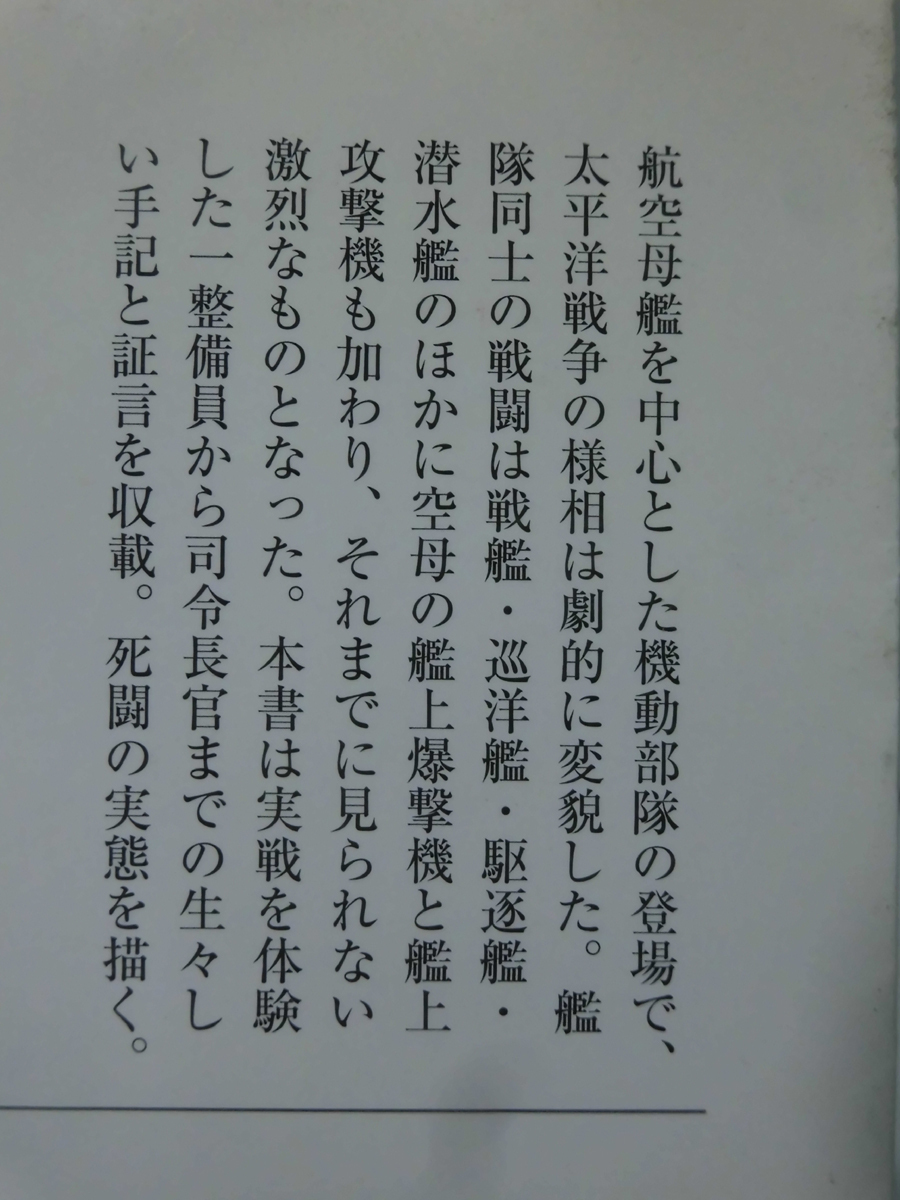 航空母艦を中心とした機動部隊の登場で、
太平洋戦争の様相は劇的に変貌した。艦
隊同士の戦闘は戦艦・巡洋艦・駆逐艦・
潜水艦のほかに空母の艦上爆撃機と艦上
攻撃機も加わり、それまでに見られない
激烈なものとなった。本書は実戦を体験
した一整備員から司令長官までの生々し
い手記と証言を収載。死闘の実態を描く。